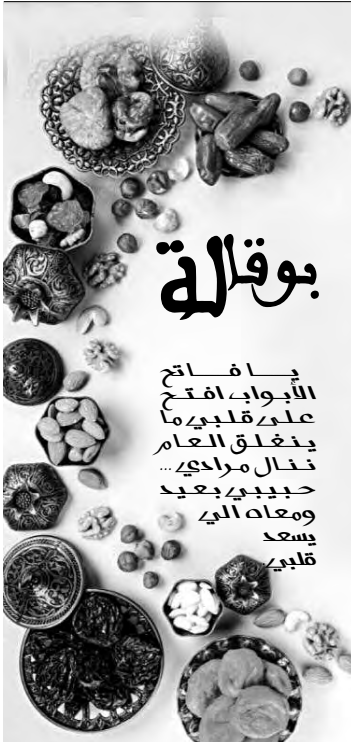 بوقالة
يا فاتح
الأبواب افتح
على قلبي ما
ينغلق العام
ننال مرادي ...
حبيبي بعيد
ومعاه الي
يسعد
قلبي